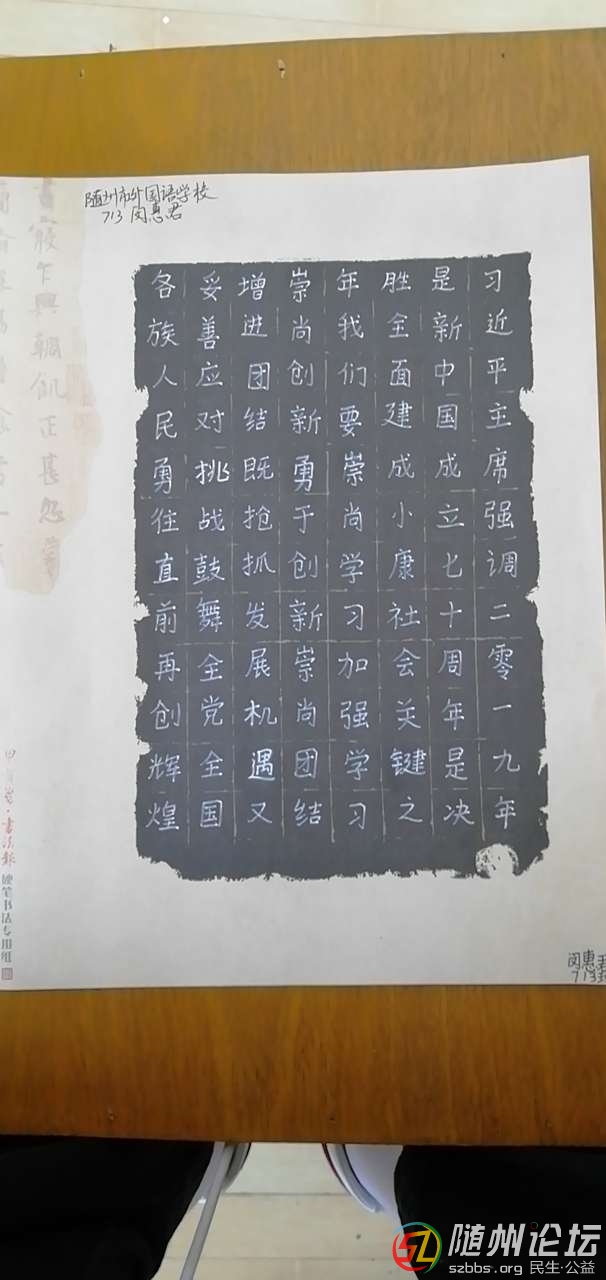 随州市外国语学校
713 闵惠君
习近平主席强调二零一九年
是新中国成立七十周年是决
胜全面建成小康社会关键之
年我们要崇尚学习加强学习
崇尚创新勇于创新崇尚团结
增进团结既抢抓发展机遇又
妥善应对挑战鼓舞全党全国
各族人民勇往直前再创辉煌
乍興輖飢正甚
書法報
硬笔书法专用纸
闵惠君
713
随州论坛
szbbs.org 民生·公益